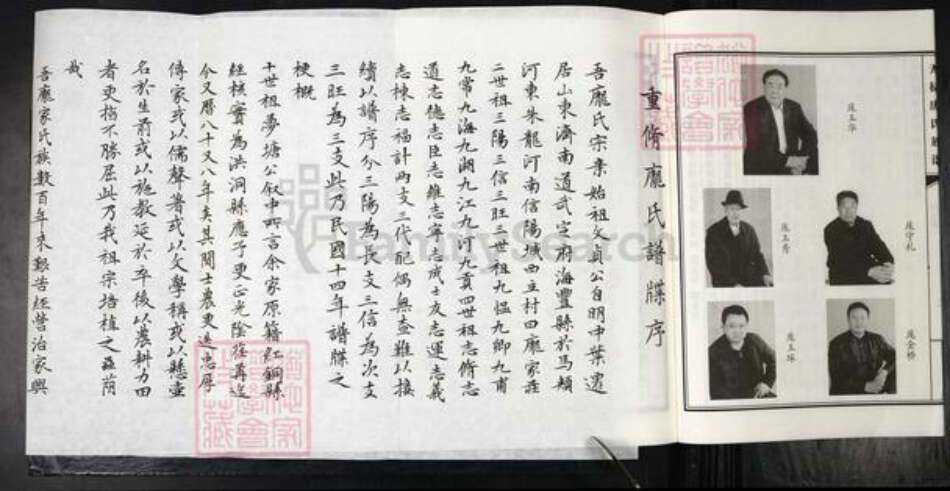 重脩龐氏譜牒序
吾龐氏宗東始祖文貞公自明中葉遷
居山東濟南道武定府海豐縣於馬頰
河東朱龍河南信陽城西立村四龐家莊
二世祖三陽三信三旺三世祖九愠九卿九甫
九常九海九湖九江九河九貢四世祖志脩志
道志德志臣志雖志寧志成志友志運志義
志棟志福計兩支三代配偶無查難以接
續以譜序今三陽為長支三信為次支
三旺為三支此乃民國十四年譜牒之
梗概
十世祖夢塘公叙中所言余家原籍紅銅縣
經核實為洪洞縣應予更正光陰荏苒迄
今又曆八十又八年矣其間士農更迭忠厚
傳家或以儒聲著或以文學稱或以懸壺
名於生前或以施教延於卒後以農耕力田
者更指不勝屈此乃我祖宗培植之
蔭
哉
吾龐家氏族數百年來艱苦經營治家興
龐玉華
龐玉秀
龐守礼
龐玉珠
龐金橋
FamilySearch